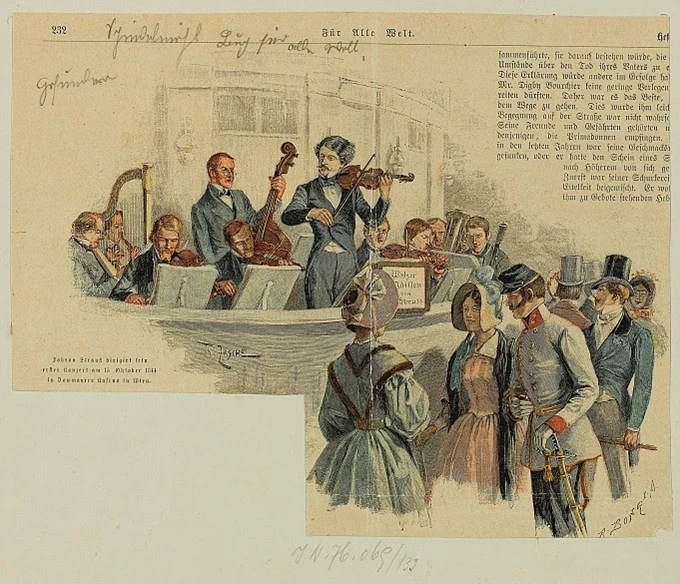 232 Für Alle Welt. Hef
Buch für alle Welt
sammenführte, sie darauf bestehen würde, die
Umstände über den Tod ihres Vaters zu e
Diese Erklärung würde andere im Gefolge ha
Mr. Digby Bourchier keine geringe Verlegen
reiten dürften. Daher war es das Beste,
dem Wege zu gehen. Dies wurde ihm leich
Begegnung auf der Straße war nicht wahrsc
Seine Freunde und Gefährten gehörten n
denjenigen, die Primadonnen empfingen.
in den letzten Jahren war seine Geschmacks
gesunken, oder er hatte den Schein eines S
nach Höherem von sich ge
Zuerst war seiner Schurkerei
Eitelkeit beigemischt. Er wol
ihm zu Gebote stehenden Heb
Walzer
Idillen
von
Strauss
Th. Zasche
Johann Strauß dirigirt sein
erstes Konzert am 15. Oktober 1844
in Dommayers Kasino in Wien.
J.N. 76.069/133